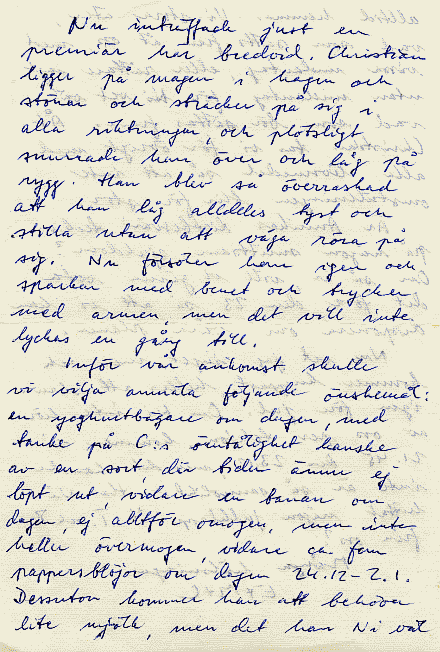 Nu inträffade just en
premiär här bredvid. Christian
ligger på magen i hagen och
stönar och sträcker på sig i
alla riktningar, och plötsligt
snurrade han över och låg på
rygg. Han blev så överraskad
att han låg alldeles tyst och
stilla utan att våga röra på
sig. Nu försöker han igen och
sparkar med benet och trycker
med armen, men det vill inte
lyckas en gång till.
Inför vår ankomst skulle
vi vilja anmäla följande önskemål:
en yoghurtbägare om dagen, med
tanke på C:s ömtålighet kanske
av en sort, där tiden ännu ej
löpt ut, vidare en banan om
dagen, ej alltför omogen, men inte
heller övermogen, vidare ca. fem
pappersblöjor om dagen 24.12-2.1.
Dessutom kommer han att behöva
lite mjölk, men det har Ni väl